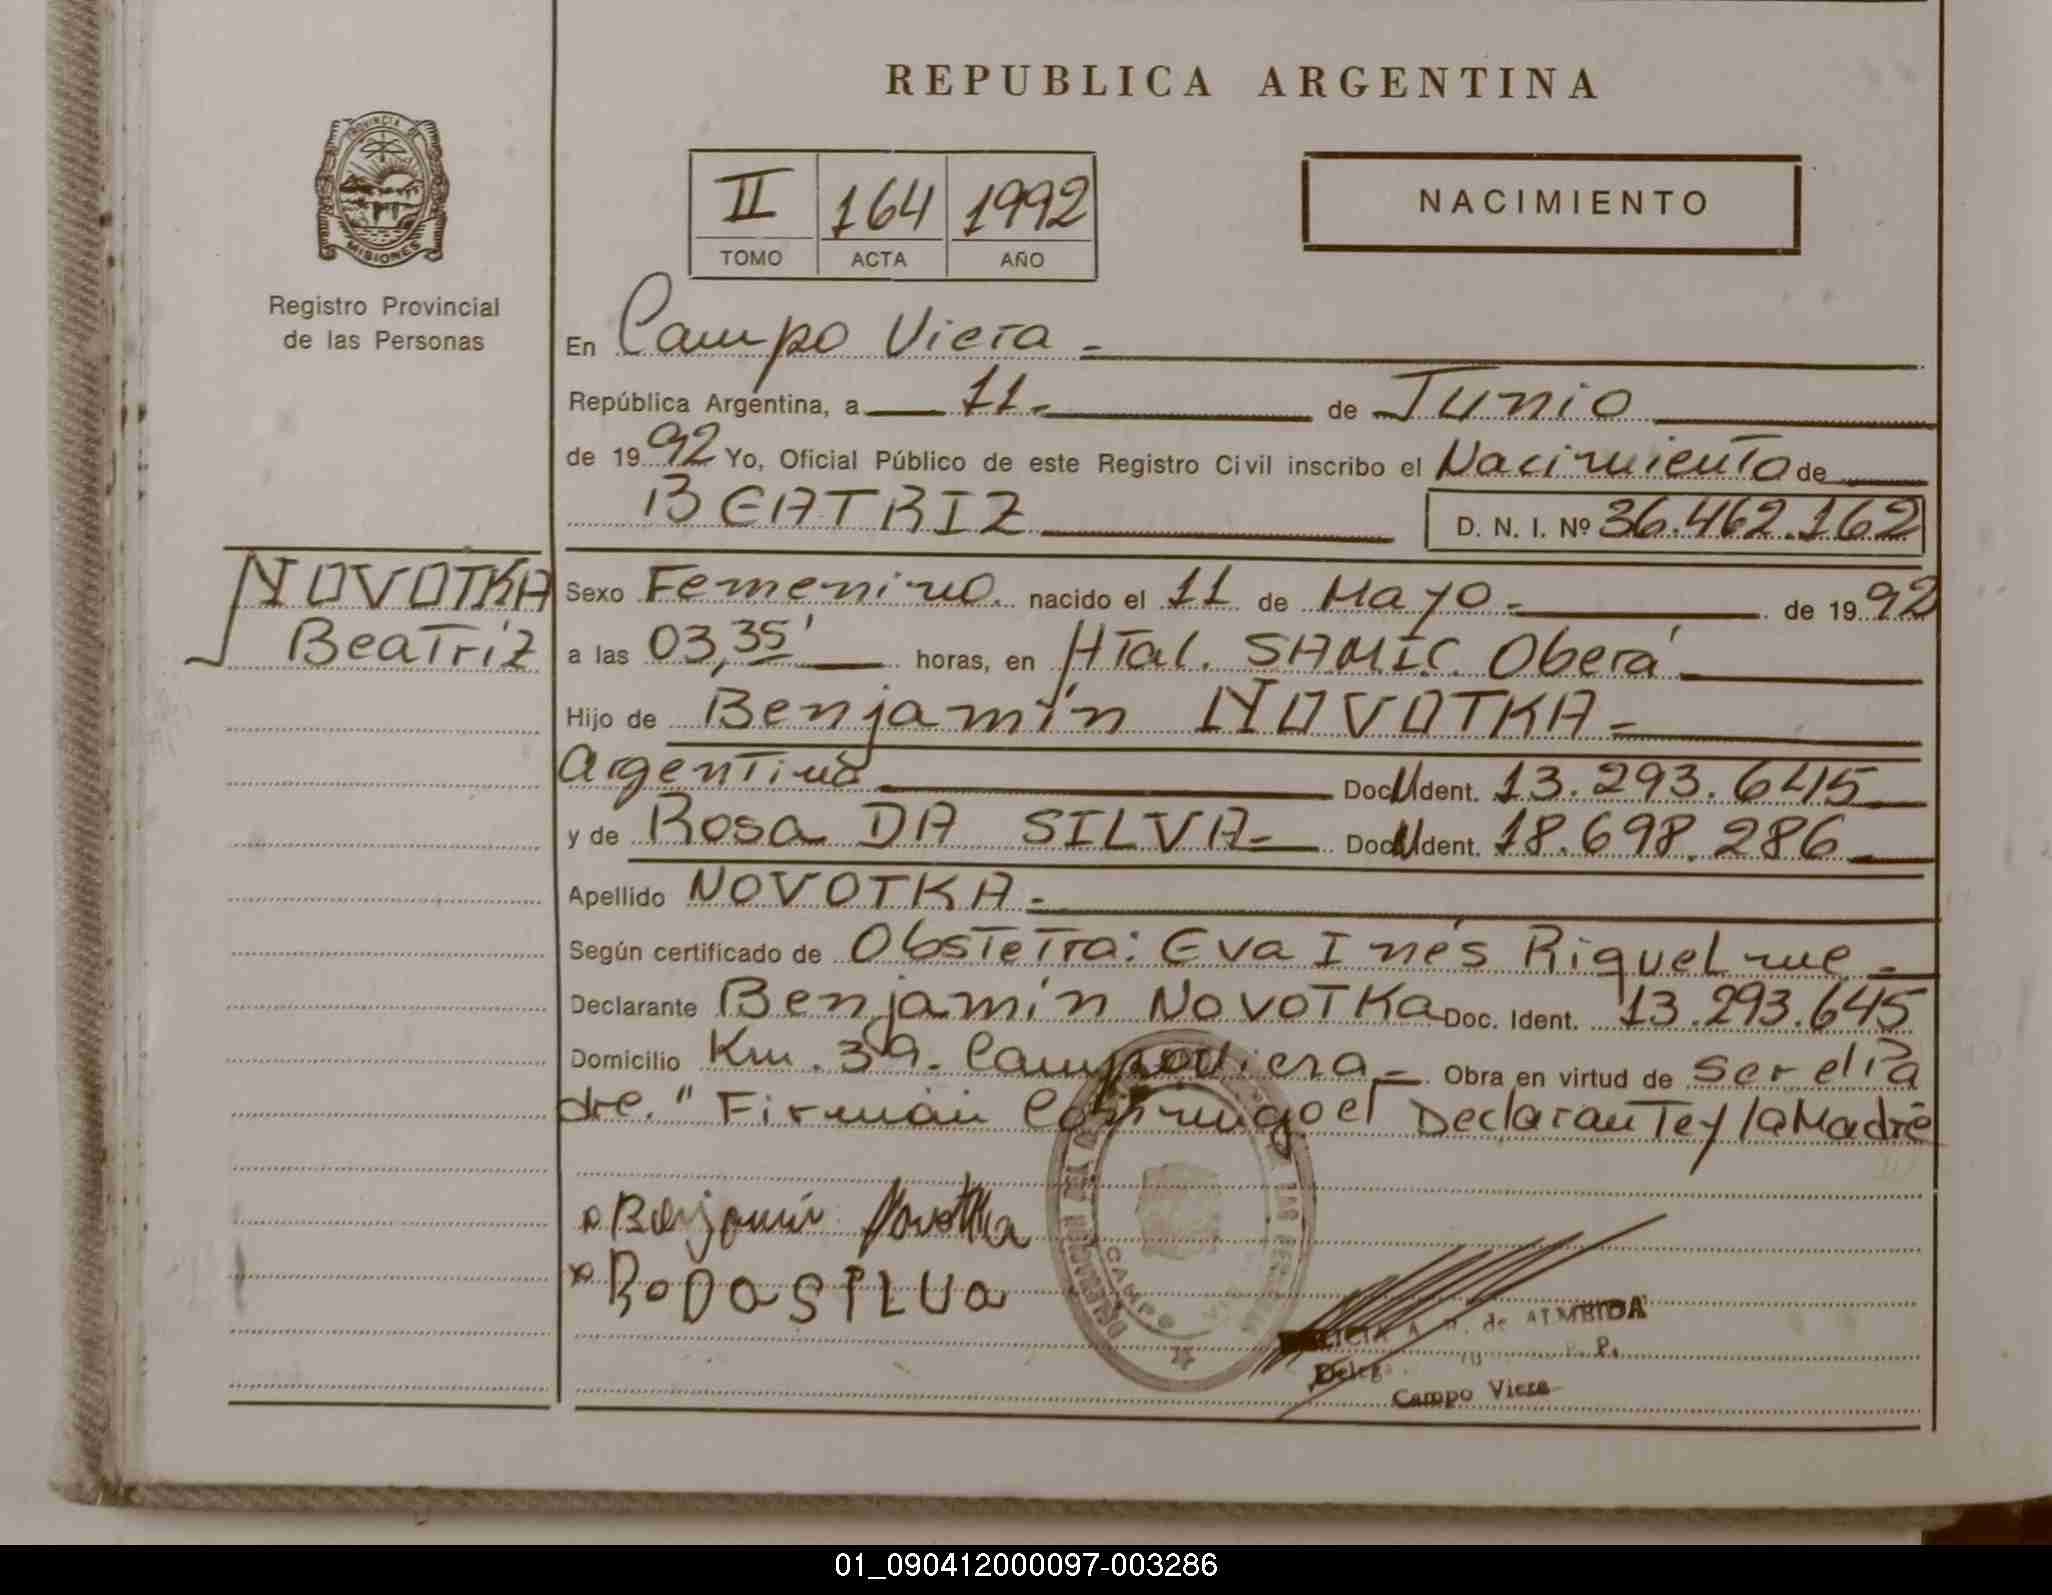 REPUBLICA ARGENTINA
PROVINCIA DE
MISIONES
Registro Provincial
de las Personas
II 164 1992
TOMO ACTA AÑO
NACIMIENTO
En Campo Viera -
República Argentina, a 11 - de Junio
de 1992 Yo, Oficial Público de este Registro Civil inscribo el Nacimiento de
BEATRIZ D. N. I. Nº 36.462.162
NOVOTKA
Beatriz
Sexo Femenino. nacido el 11 de Mayo - de 1992
a las 03,35' horas, en Htal. SAMIC. Oberá
Hijo de Benjamín NOVOTKA -
Argentina Doc. U Ident. 13.293.645
y de Rosa DA SILVA - Doc. U Ident. 18.698.286
Apellido NOVOTKA -
Según certificado de Obstetra: Eva Inés Riquelme -
Declarante Benjamín NOVOTKA Doc. Ident. 13.293.645
Domicilio Km. 39. Campo Viera - Obra en virtud de ser el Pa
dre. " Firman Conmigo el Declarante y la Madre
Benjamin Novotka
Ro DA SILVA
CAMPO
de ALMEIDA
Deleg
Campo Viera
01_090412000097-003286